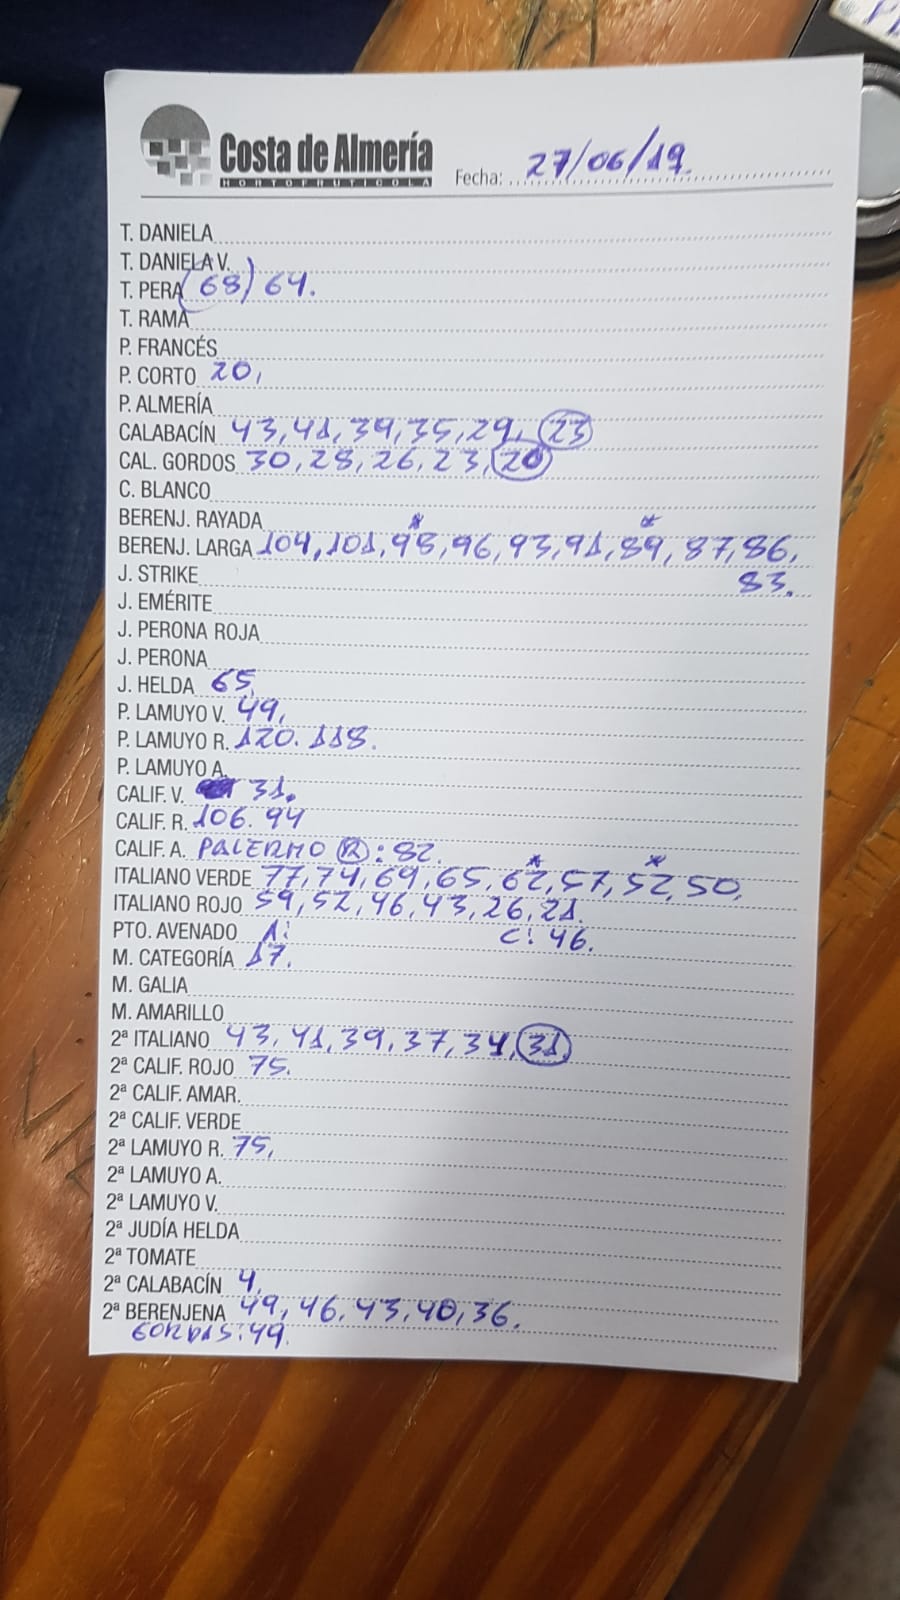 Costa de Almería
HORTOFRUTICOLA
Fecha: 27/06/19
T. DANIELA
T. DANIELA V.
T. PERA (68) 64.
T. RAMA
P. FRANCÉS
P. CORTO 20,
P. ALMERÍA
CALABACÍN 43, 41, 39, 35, 29, 23
CAL. GORDOS 30, 28, 26, 23, 20
C. BLANCO
BERENJ. RAYADA
* *
BERENJ. LARGA 104, 101, 98, 96, 93, 91, 89, 87, 86,
83.
J. STRIKE
J. EMÉRITE
J. PERONA ROJA
J. PERONA
J. HELDA 65,
P. LAMUYO V. 49,
P. LAMUYO R. 120. 118.
P. LAMUYO A.
CALIF. V. 31.
CALIF. R. 106. 94
CALIF. A. PALERMO R: 82.
* *
ITALIANO VERDE 77, 74, 69, 65, 62, 57, 52, 50,
ITALIANO ROJO 59, 52, 46, 43, 26, 21.
PTO. AVENADO A: C: 46.
M. CATEGORÍA 17.
M. GALIA
M. AMARILLO
2ª ITALIANO 43, 41, 39, 37, 34, 31
2ª CALIF. ROJO 75.
2ª CALIF. AMAR.
2ª CALIF. VERDE
2ª LAMUYO R. 75,
2ª LAMUYO A.
2ª LAMUYO V.
2ª JUDÍA HELDA
2ª TOMATE
2ª CALABACÍN 4,
2ª BERENJENA 49, 46, 43, 40, 36.
GORDAS: 49.